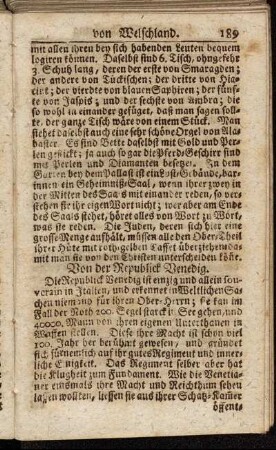 von Welschland. 189
mit allen ihren bey sich habenden Leuten bequem
logiren können. Daselbst sind 6. Tisch, ohngefehr
3. Schuh lang, deren der erste von Smaragden;
der andere von Türckischen; der dritte von Hia-
cint; der vierdte von blauen Saphiren; der fünf-
te von Jaspis; und der sechste von Ambra; die
so wohl in einander gefüget, daß man sagen soll-
te, der gantze Tisch wäre von einem Stück. Man
siehet daselbst auch eine sehr schöne Orgel von Ala-
baster. Es sind Bette daselbst mit Gold und Per-
len gestickt; ja auch so gar die Pferds-Geschirr sind
mit Perlen und Diamanten besetzet. In dem
Garten bey dem Pallast ist ein Lust-Gebäude, dar-
innen ein Geheimniß-Saal, wenn ihrer zwey in
der Mitten des Saals mit einander reden, so ver-
stehen sie ihr eigen Wort nicht; wer aber am Ende
des Saals stehet, höret alles von Wort zu Wort,
was sie reden. Die Juden, deren sich hier eine
grosse Menge aufhält, müssen alle den Ober-Theil
ihrer Hüte mit roth-gelben Taffet überziehen, da-
mit man sie von den Christen unterscheiden köñe.
Von der Republick Venedig.
Die Republick Venedig ist einzig und allein sou-
verain in Italien, und erkennet in Weltlichen Sa-
chen niemand für ihren Ober-Herrn; sie kan im
Fall der Noth 200. Segel starck in See gehen, und
40000. Mann von ihren eigenen Unterthanen in
Waffen stellen. Diese ihre Macht ist schon viel
100. Jahr her berühmt gewesen, und gründet
sich fürnemlich auf ihr gutes Regiment und inner-
liche Einigkeit. Das Regiment selber aber hat
die Klugheit zum Fundament. Wie die Venetia-
ner einsmals ihre Macht und Reichthum sehen
lassen wollten, liessen sie aus ihrer Schatz-Kam̃er
öffent-